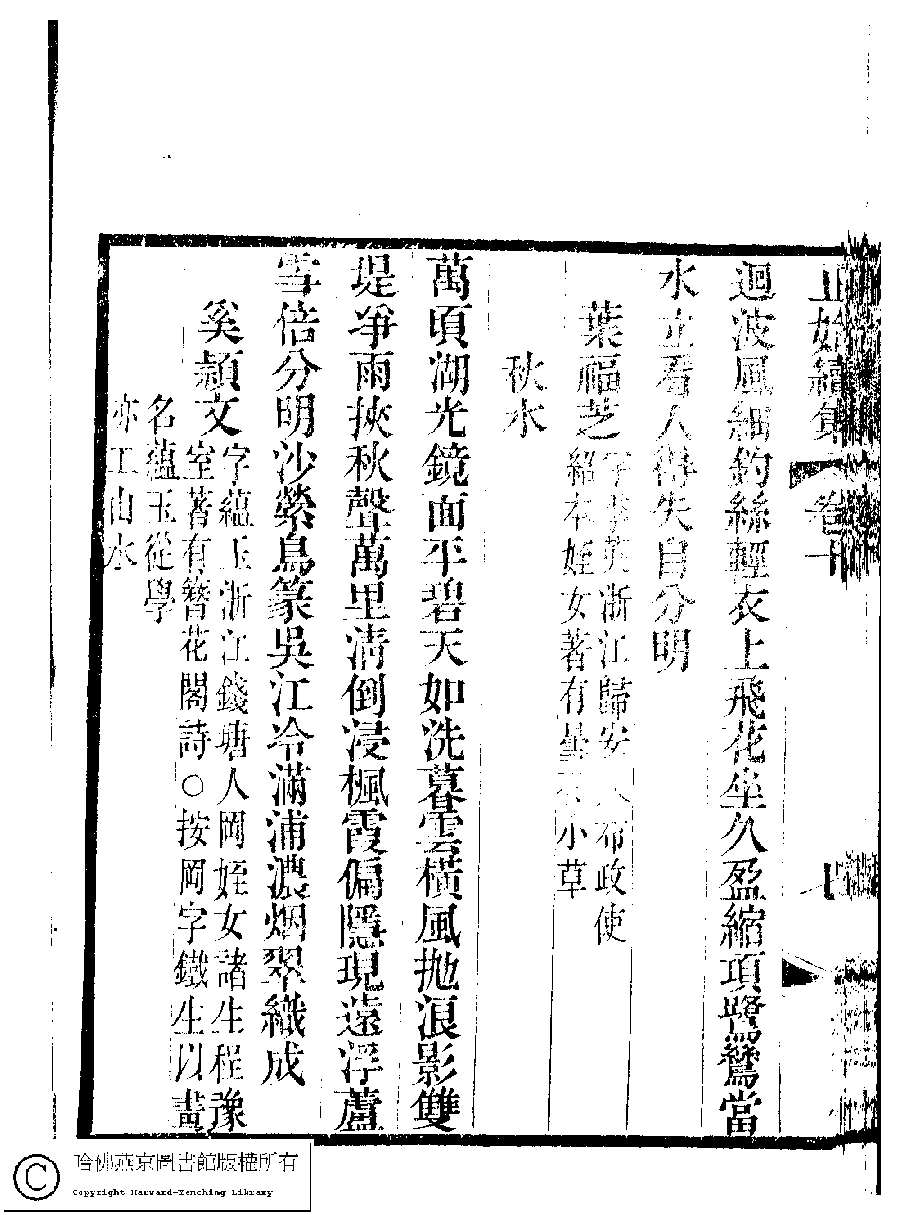 正始續集 卷十
迴波風細釣絲輕衣上飛花坐久盈縮項鷺鷥當
水立看人得失自分明
葉福芝
浙江歸安人布政使
紹本姪女著有曇 小草
秋水
萬頃湖光鏡面平碧天如洗暮雲橫風拋浪影雙
堤爭雨挾秋聲萬里清倒浸楓霞偏隱現遠浮蘆
雪倍分明沙縈鳥篆吳江冷滿浦濃烟翠織成
奚頴文
字蘊玉浙江錢塘人岡姪女諸生程豫
室著有簪花閣詩○按岡字鐵生以畫
名蘊玉從學
亦工山水
哈佛燕京圖書館版權所有
Copyright Harvard-Yenching Library